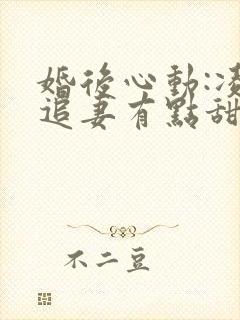 婚後心動:凌
追妻有點甜
不二豆